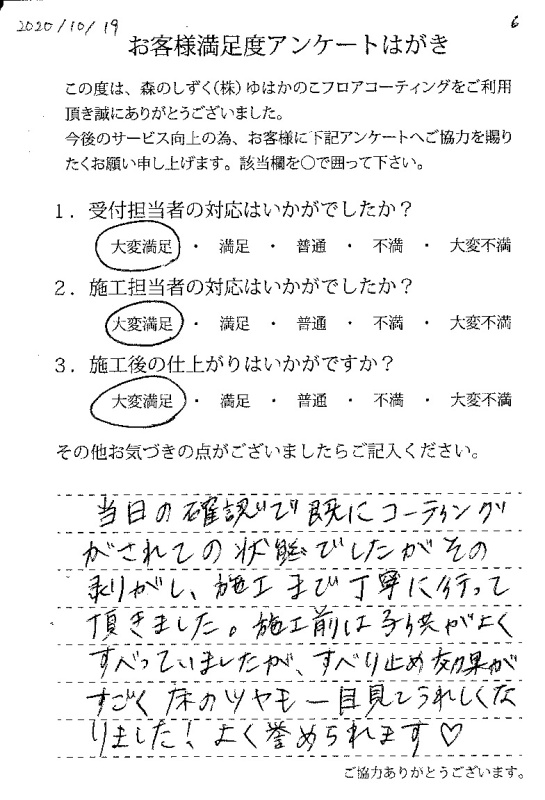 2020/10/19
6
お客様満足度アンケートはがき
この度は、森のしずく(株)ゆはかのこフロアコーティングをご利用
頂き誠にありがとうございました。
今後のサービス向上の為、お客様に下記アンケートへご協力を賜り
たくお願い申し上げます。該当欄を〇で囲って下さい。
1．受付担当者の対応はいかがでしたか？
大変満足 ・ 満足 ・ 普通 ・ 不満 ・ 大変不満
2．施工担当者の対応はいかがでしたか？
大変満足 ・ 満足 ・ 普通 ・ 不満 ・ 大変不満
3．施工後の仕上がりはいかがですか？
大変満足 ・ 満足 ・ 普通 ・ 不満 ・ 大変不満
その他お気づきの点がございましたらご記入ください。
当日の確認で既にコーティング
がされての状態でしたがその
剥がし、施工まで丁寧に行って
頂きました。施工前は子供がよく
すべっていましたが、すべり止め効果が
すごく床のツヤも一目見てうれしくな
りました！よく誉められます♡
ご協力ありがとうございます。